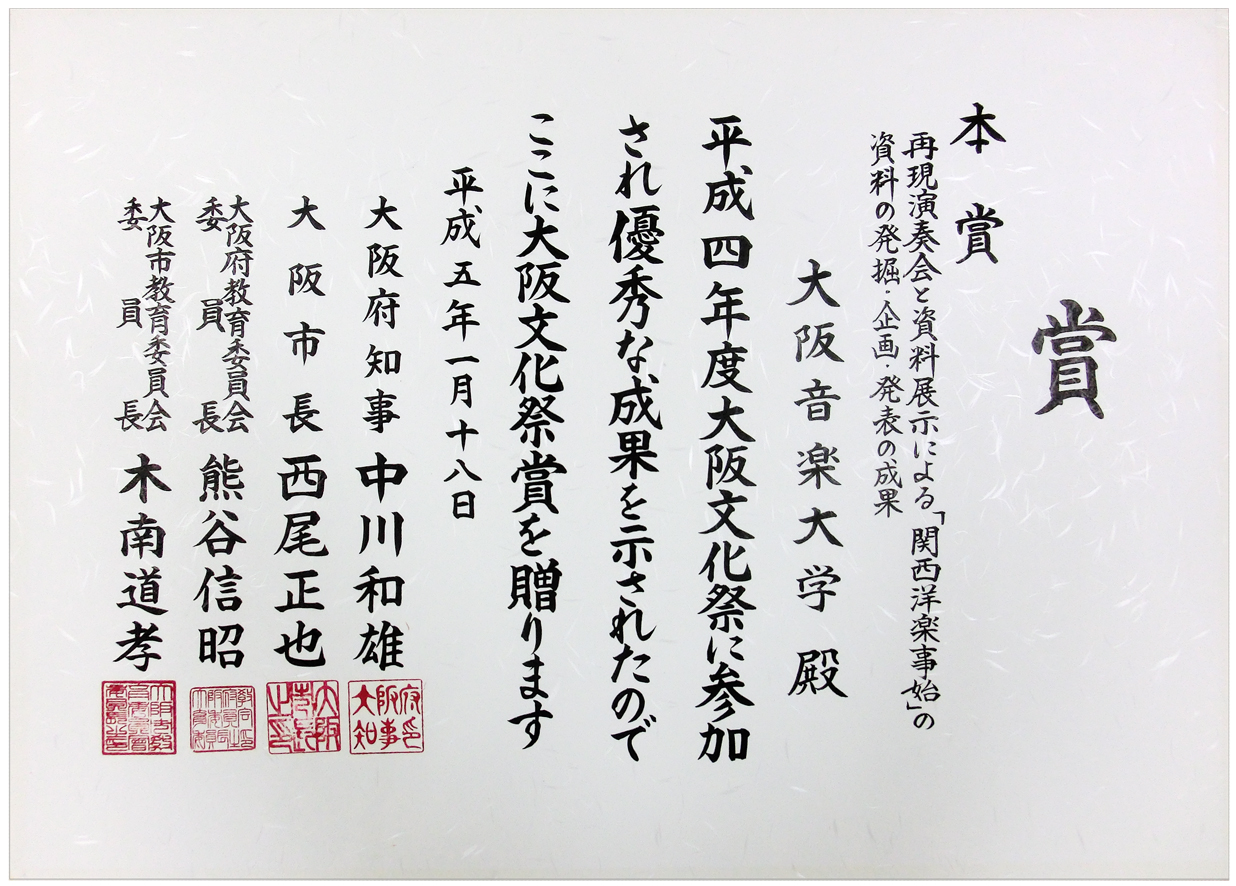 賞
本賞
再現演奏会と資料展示による「関西洋楽事始」の
資料の発掘・企画・発表の成果
大阪音楽大学 殿
平成四年度大阪文化祭に参加
され優秀な成果を示されたので
ここに大阪文化祭賞を贈ります
平成五年一月十八日
大阪府知事 中川和雄
大阪市長 西尾正也
大阪府教育委員会
委員長 熊谷信昭
大阪市教育委員会
委員長 木南道孝